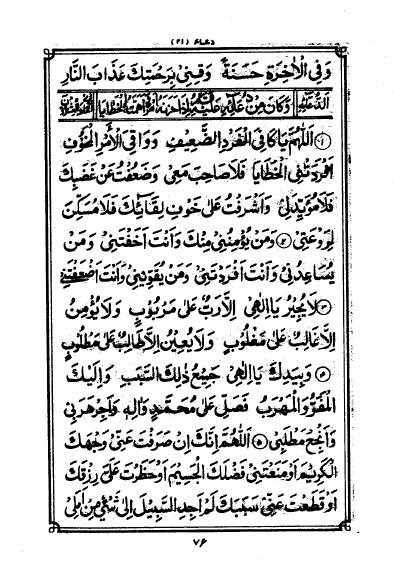 دعاء (٢١)
وَفِي الْاٰخِرَةِ حَسَنَةً وَقِنِيْ بِرَحْمَتِكَ عَذَابَ النَّارِ
وَكَانَ مِنْ دُعَائِهٖ عَلَيْهِ السَّلَامُ اِذَا حَزَنَهُ اَمْرٌ وَاَهَمَّتْهُ الْخَطَايَا
١ اَللّٰهُمَّ يَا كَافِيَ الْفَرْدِ الضَّعِيْفِ وَوَاقِيَ الْاَمْرِ الْمَخُوْفِ
اَفْرَدَتْنِي الْخَطَايَا فَلَا صَاحِبَ مَعِيْ وَضَعُفْتُ عَنْ غَضَبِكَ
فَلَا مُؤَيِّدَ لِيْ وَاَشْرَفْتُ عَلٰى خَوْفِ لِقَائِكَ فَلَا مُسَكِّنَ
لِرَوْعَتِيْ ٢ وَمَنْ يُؤْمِنُنِيْ مِنْكَ وَاَنْتَ اَخَفْتَنِيْ وَمَنْ
يُسَاعِدُنِيْ وَاَنْتَ اَفْرَدْتَنِيْ وَمَنْ يُقَوِّيْنِيْ وَاَنْتَ اَضْعَفْتَنِيْ
٣ لَا يُجِيْرُ يَا اِلٰهِيْ اِلَّا رَبٌّ عَلٰى مَرْبُوْبٍ وَلَا يُؤْمِنُ
اِلَّا غَالِبٌ عَلٰى مَغْلُوْبٍ وَلَا يُعِيْنُ اِلَّا طَالِبٌ عَلٰى مَطْلُوْبٍ
وَبِيَدِكَ يَا اِلٰهِيْ جَمِيْعُ ذٰلِكَ السَّبَبِ وَاِلَيْكَ
الْمَفَرُّ وَالْمَهْرَبُ فَصَلِّ عَلٰى مُحَمَّدٍ وَاٰلِهٖ وَاَجِرْ هَرَبِيْ
وَاَنْجِحْ مَطْلَبِيْ ٥ اَللّٰهُمَّ اِنَّكَ اِنْ صَرَفْتَ عَنِّيْ وَجْهَكَ
الْكَرِيْمَ اَوْ مَنَعْتَنِيْ فَضْلَكَ الْجَسِيْمَ اَوْ حَظَرْتَ عَلَيَّ رِزْقَكَ
اَوْ قَطَعْتَ عَنِّيْ سَبَبَكَ لَمْ اَجِدِ السَّبِيْلَ اِلٰى شَيْءٍ مِنْ اَمَلِيْ
٧٦